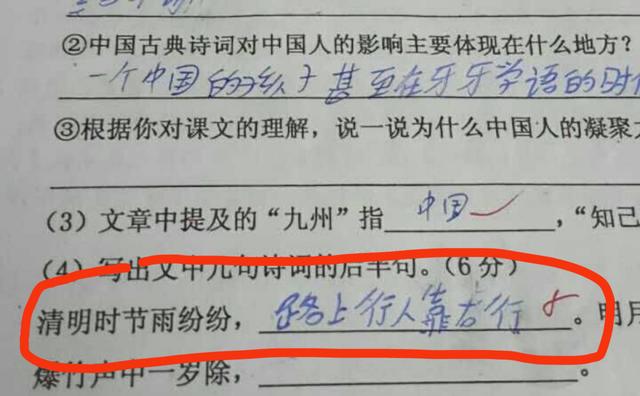 ②中国古典诗词对中国人的影响主要体现在什么地方？
一个中国的孩子甚至在牙牙学语的时
③根据你对课文的理解，说一说为什么中国人的凝聚
（3）文章中提及的“九州”指中国，“知己
（4）写出文中几句诗词的后半句。（6分）
清明时节雨纷纷，路上行人靠右行。明月
爆竹声中一岁除，。